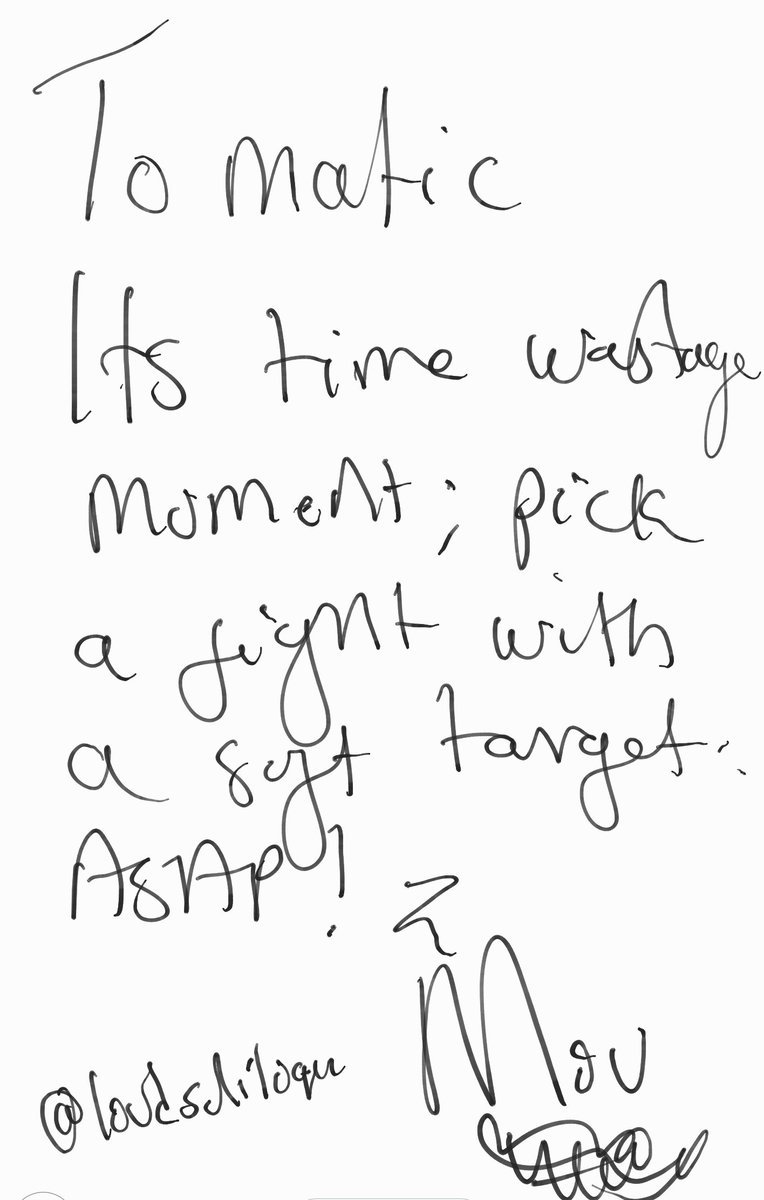 To Matic
Its time wastage
Moment; pick
a fight with
a soft target.
ASAP!
Mou